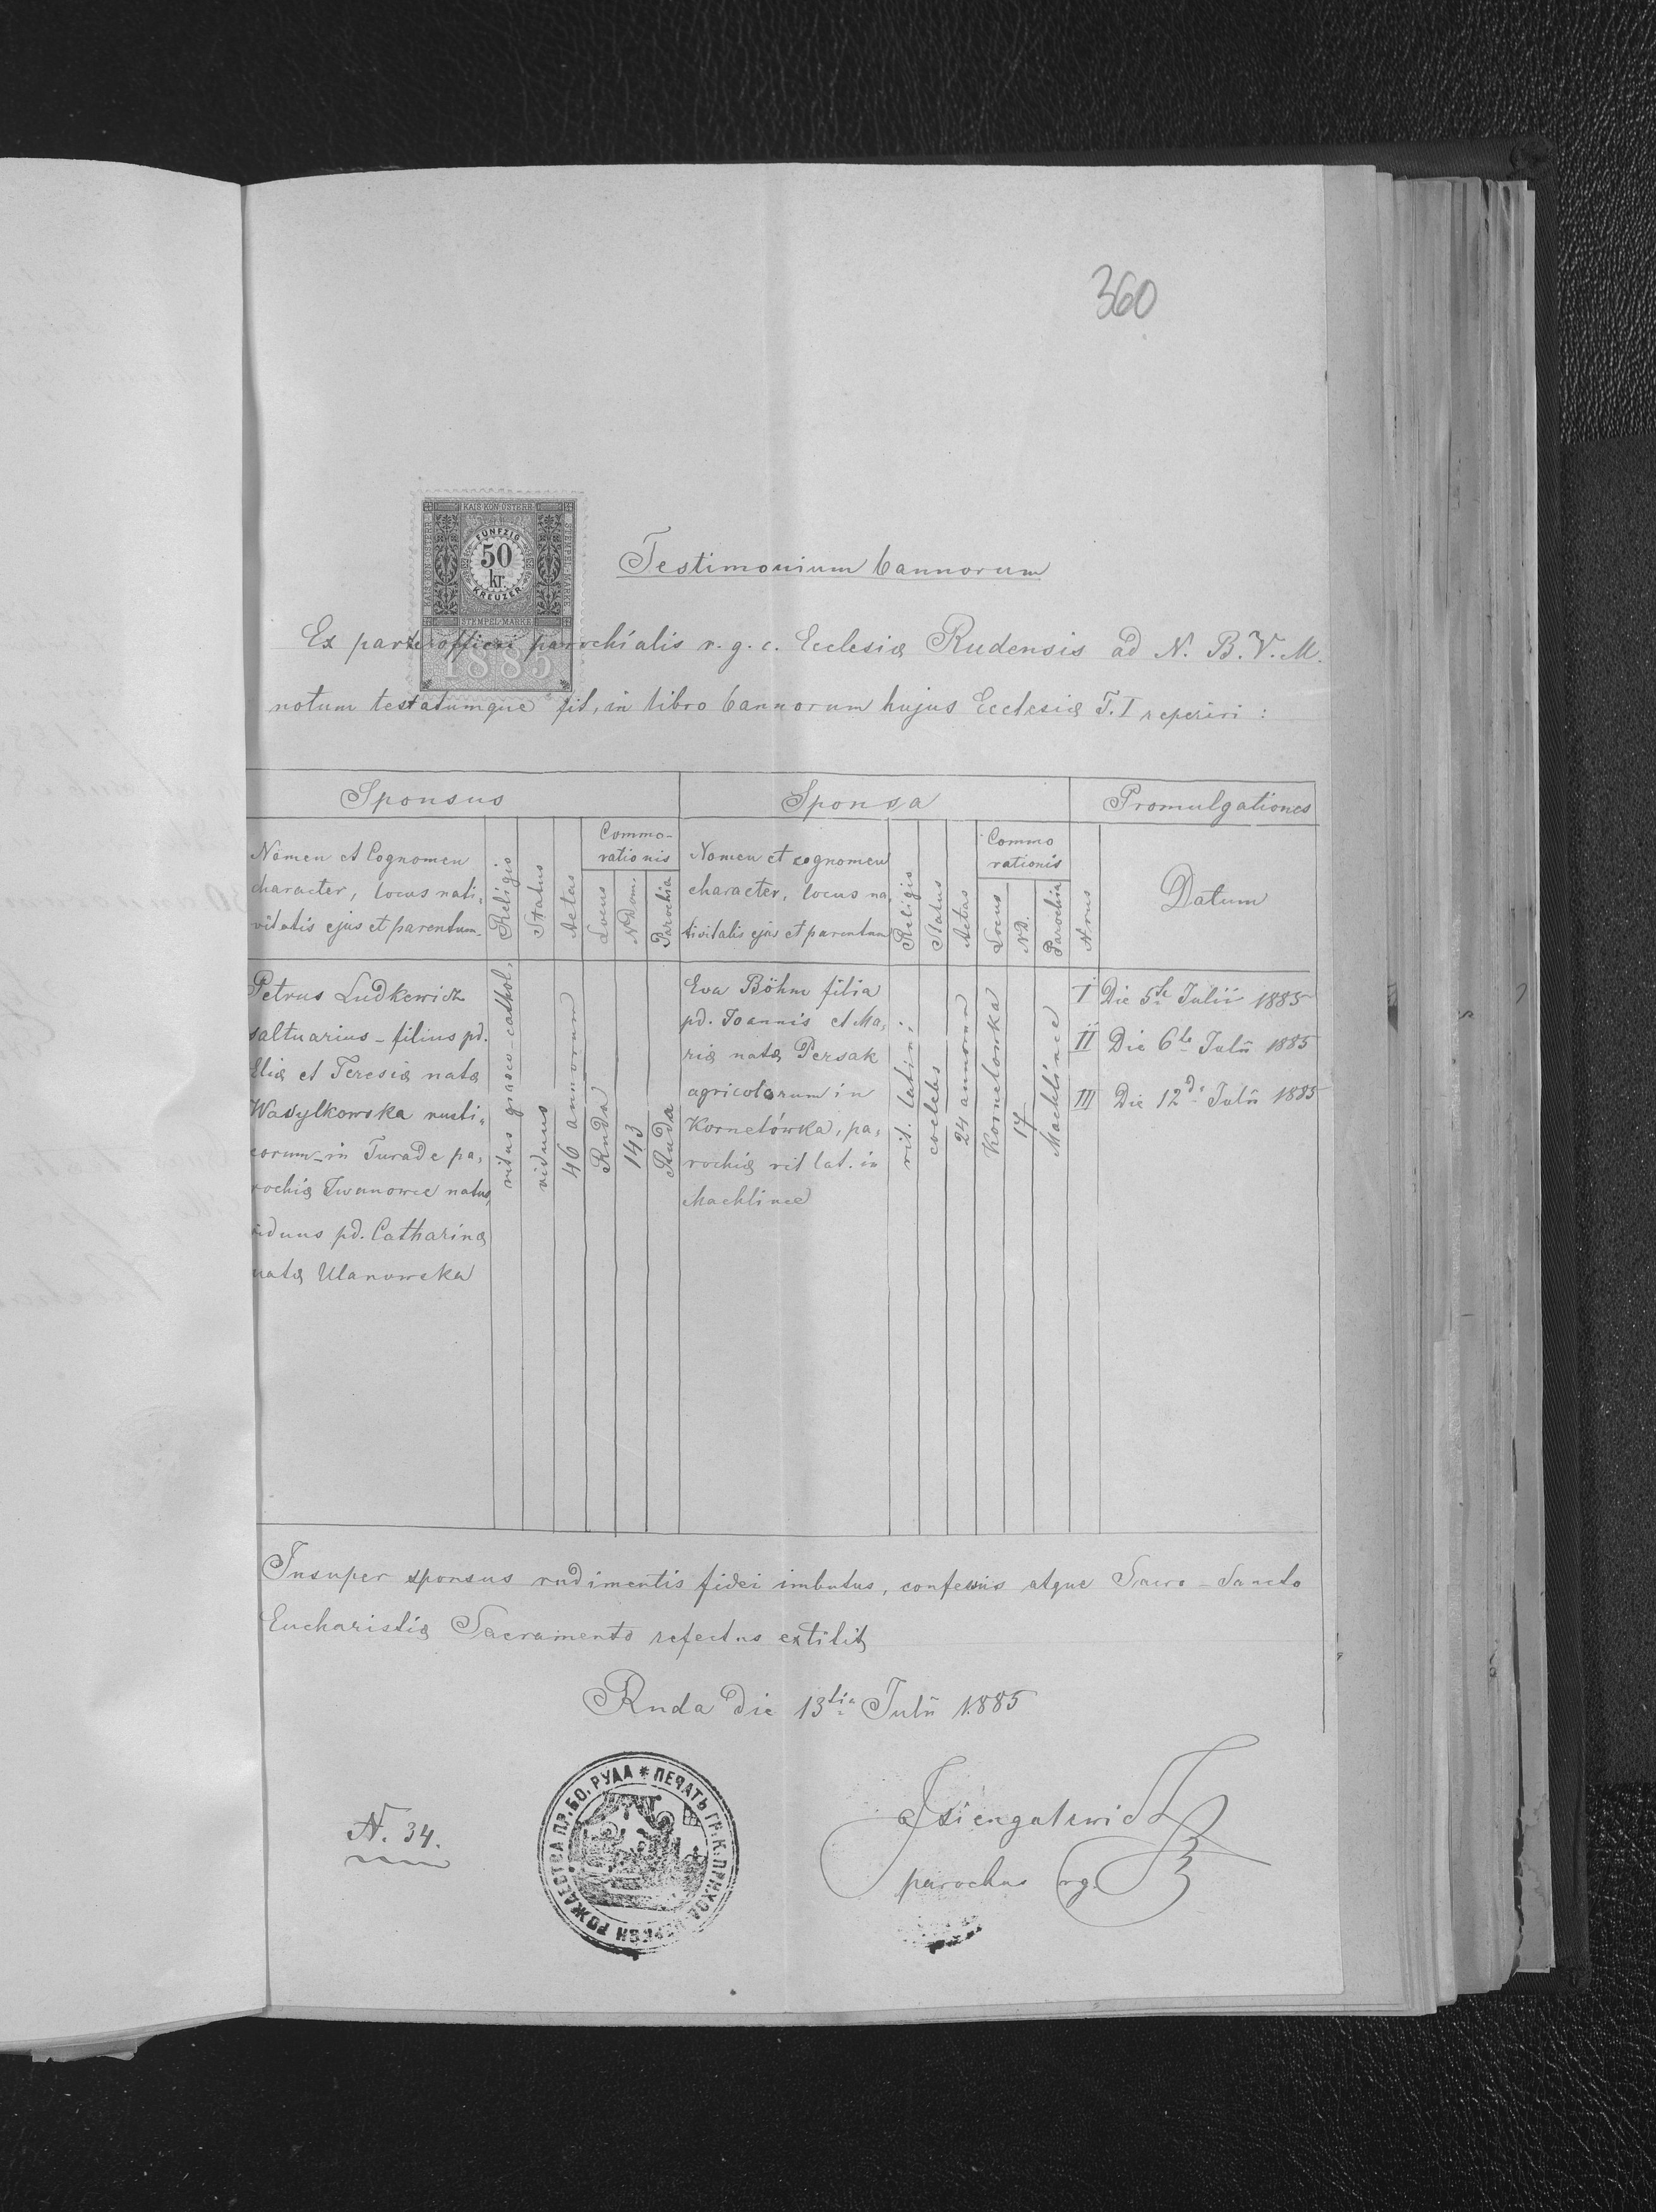 360
KAIS. KÖN. ÖSTERR.
KAIS. KÖN. ÖSTERR.
STEMPEL-MARKE
FÜNFZIG
50
kr.
KREUZER
STEMPEL-MARKE
1885
Testimonium bannorum
Ex parte officii parochialis r. g. c. Ecclesiæ Rudensis ad N. B. V. M.
notum testatumque fit, in libro bannorum hujus Ecclesiæ T. I reperiri :
Sponsus
Sponsa
Promulgationes
Nomen et Cognomen
character, locus nati-
vitatis ejus et parentum
Religio
Status
Aetas
Commo-
rationis
Locus
N Dom.
Parochia
Nomen et cognomen
character, locus na-
tivitatis ejus et parentum
Religio
Status
Aetas
Commo
rationis
Locus
ND.
Parochia
Nrus
Datum
Petrus Ludkewicz
saltuarius - filius pd.
Eliæ et Teresiæ natæ
Wasylkowska rusti-
corum - in Turade pa-
rochiæ Iwanowce natus,
viduus pd. Catharinæ
natæ Ulanowska
ritus græco-cathol.
viduus
46 annorum
Ruda
143
Ruda
Eva Böhm filia
pd. Joannis et Ma-
riæ natæ Persak
agricolarum in
Kornelówka, pa-
rochiæ rit lat. in
Machlince
rit. latini
coelebs
24 annorum
Kornelowka
17
Machlince
I Die 5ta Julii 1885
II Die 6ta Julii 1885
III Die 12d. Julii 1885
Insuper sponsus rudimentis fidei imbutus, confessus atque Sacro-Sancto
Eucharistiæ Sacramento refectus extitit
Ruda die 13tia Julii 1885
N. 34.
ПЕЧАТЬ ГР. К. ПРИХОД. ЦЕРКВИ РОЖДЕСТВА ПР. БО. РУДА
parochus rg.